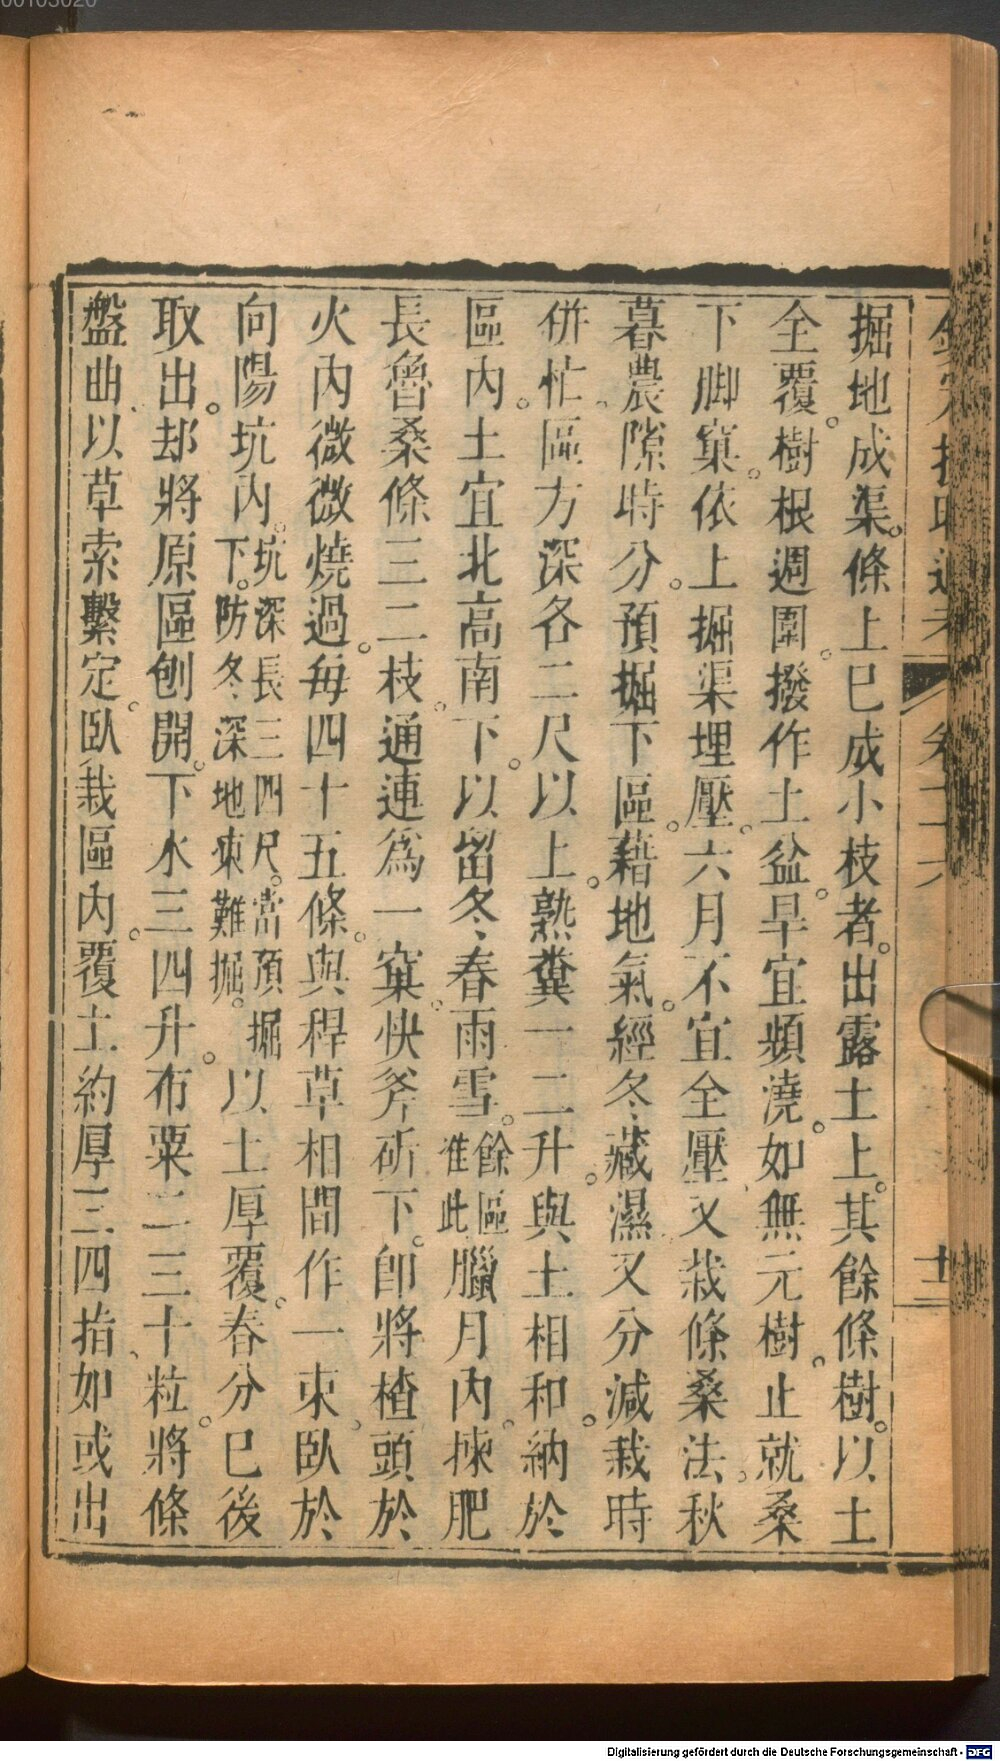 00103020
掘地成渠。條上巳成小枝者。出露土上。其餘條樹。以土
全覆。樹根週圍。撥作土盆。旱宜頻澆。如無元樹。止就桑
下脚窠。依上掘渠埋壓。六月不宜全壓又栽條桑法。秋
暮農隙時分。預掘下區。藉地氣。經冬藏濕又分減栽時
併忙。區方深各二尺以上。熟糞一二升。與土相和。納於
區內。土宜北高南下。以留冬春雨雪。餘區准此臘月內。揀肥
長魯桑條三二枝。通連爲一窠。快斧斫下。卽將楂頭於
火內微微燒過。每四十五條。與稈草相間作一束。臥於
向陽坑內。坑深長三四尺。當預掘下。防冬深地凍難掘。以土厚覆。春分巳後
取出。却將原區刨開。下水三四升。布粟二三十粒。將條
盤曲、以草索繫定。臥栽區內。覆土約厚三四指、如或出
卷二十六
十三
Digitalisierung gefördert durch die Deutsche Forschungsgemeinschaft - DFG